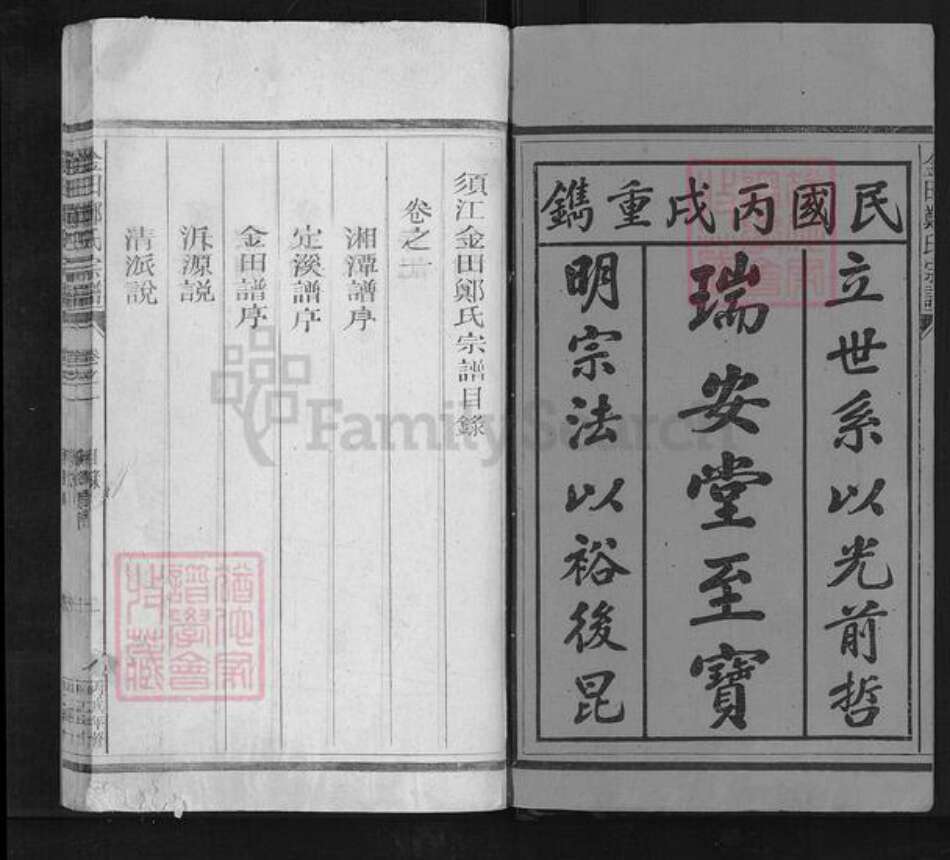 民國丙戌重鐫
立世系以光前哲
瑞安堂至寶
明宗法以裕後昆
須江金田鄭氏宗譜目錄
卷之一
湘潭譜序
定溪譜序
金田譜序
泝源説
清派說
金田鄭氏宗譜
FamilySearch